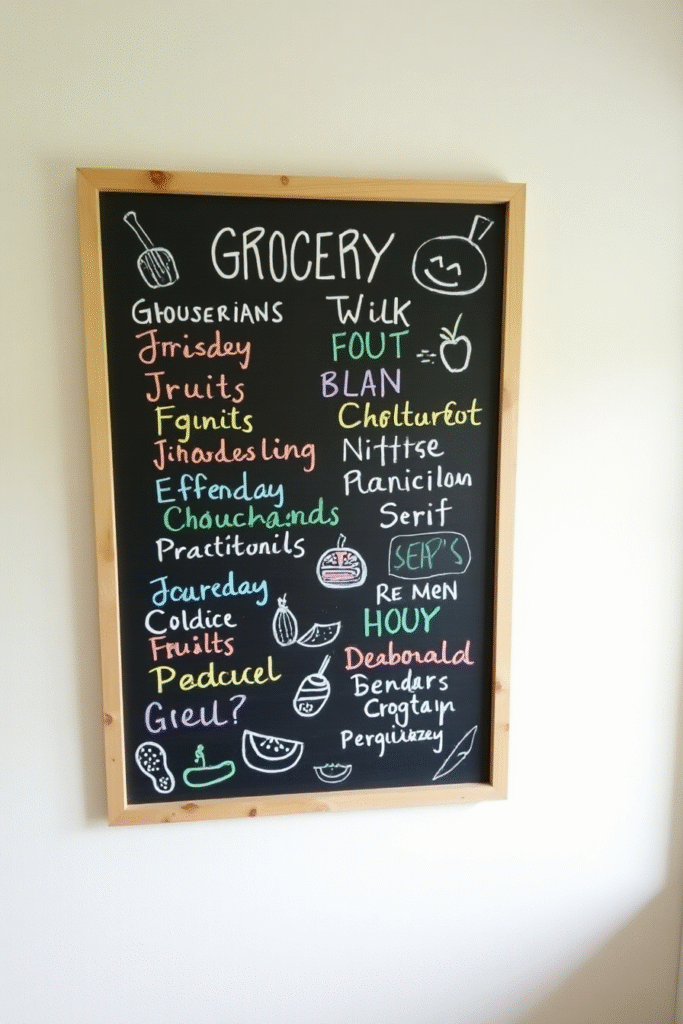 GROCERY
GHOUSERIANS
Jrrisdey
Jruits
Fginits
Jihoadesling
Effenday
Chouchands
Practitonils
Jcureday
Coldice
Fruilts
Pedcucel
Giell?
WilK
FOUT
BLAN
Cholturfot
Nittse
Planicilom
Serif
SEAP'S
RE MEN
HOUY
Deaborald
Bendars
Crogtaip